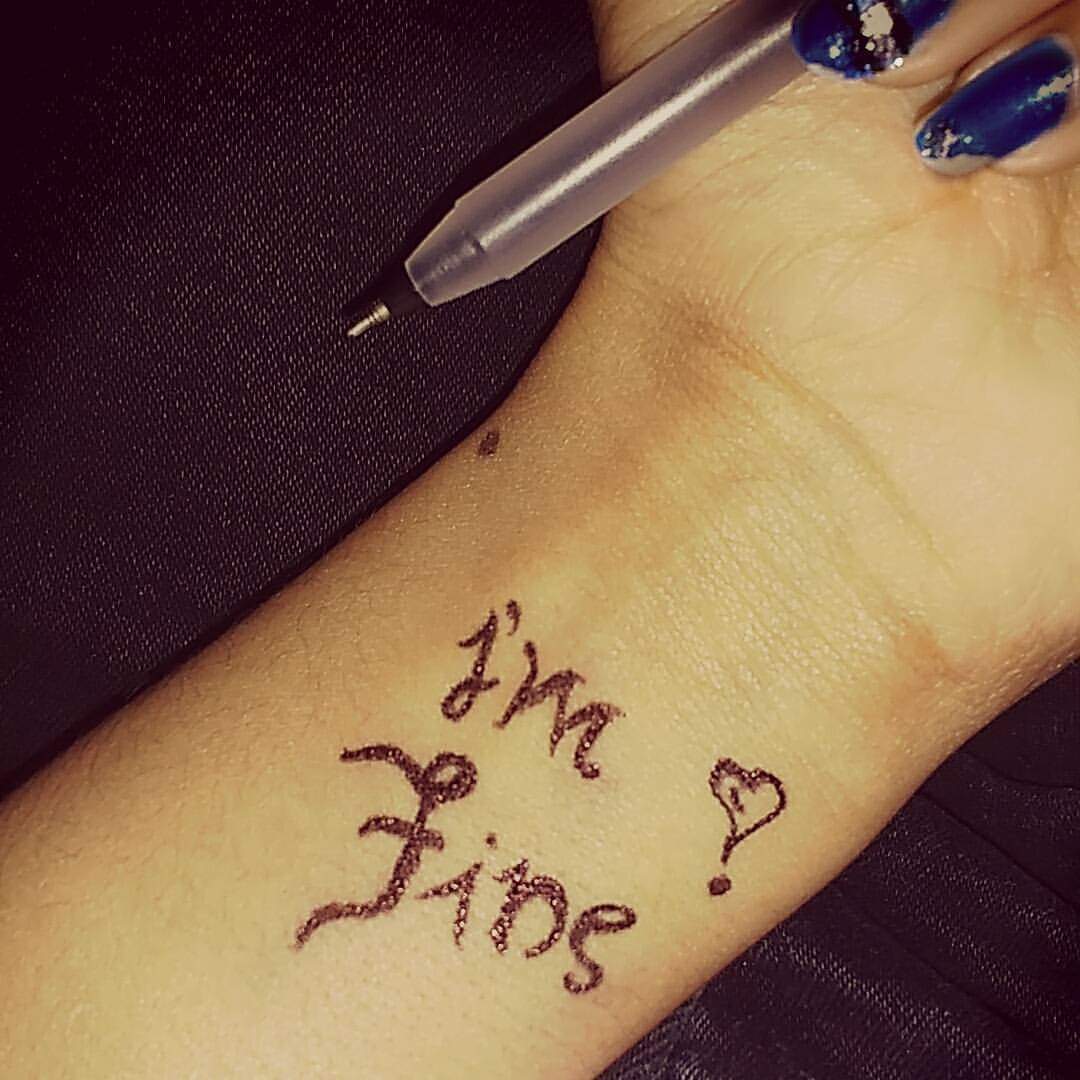 I'm
Fine